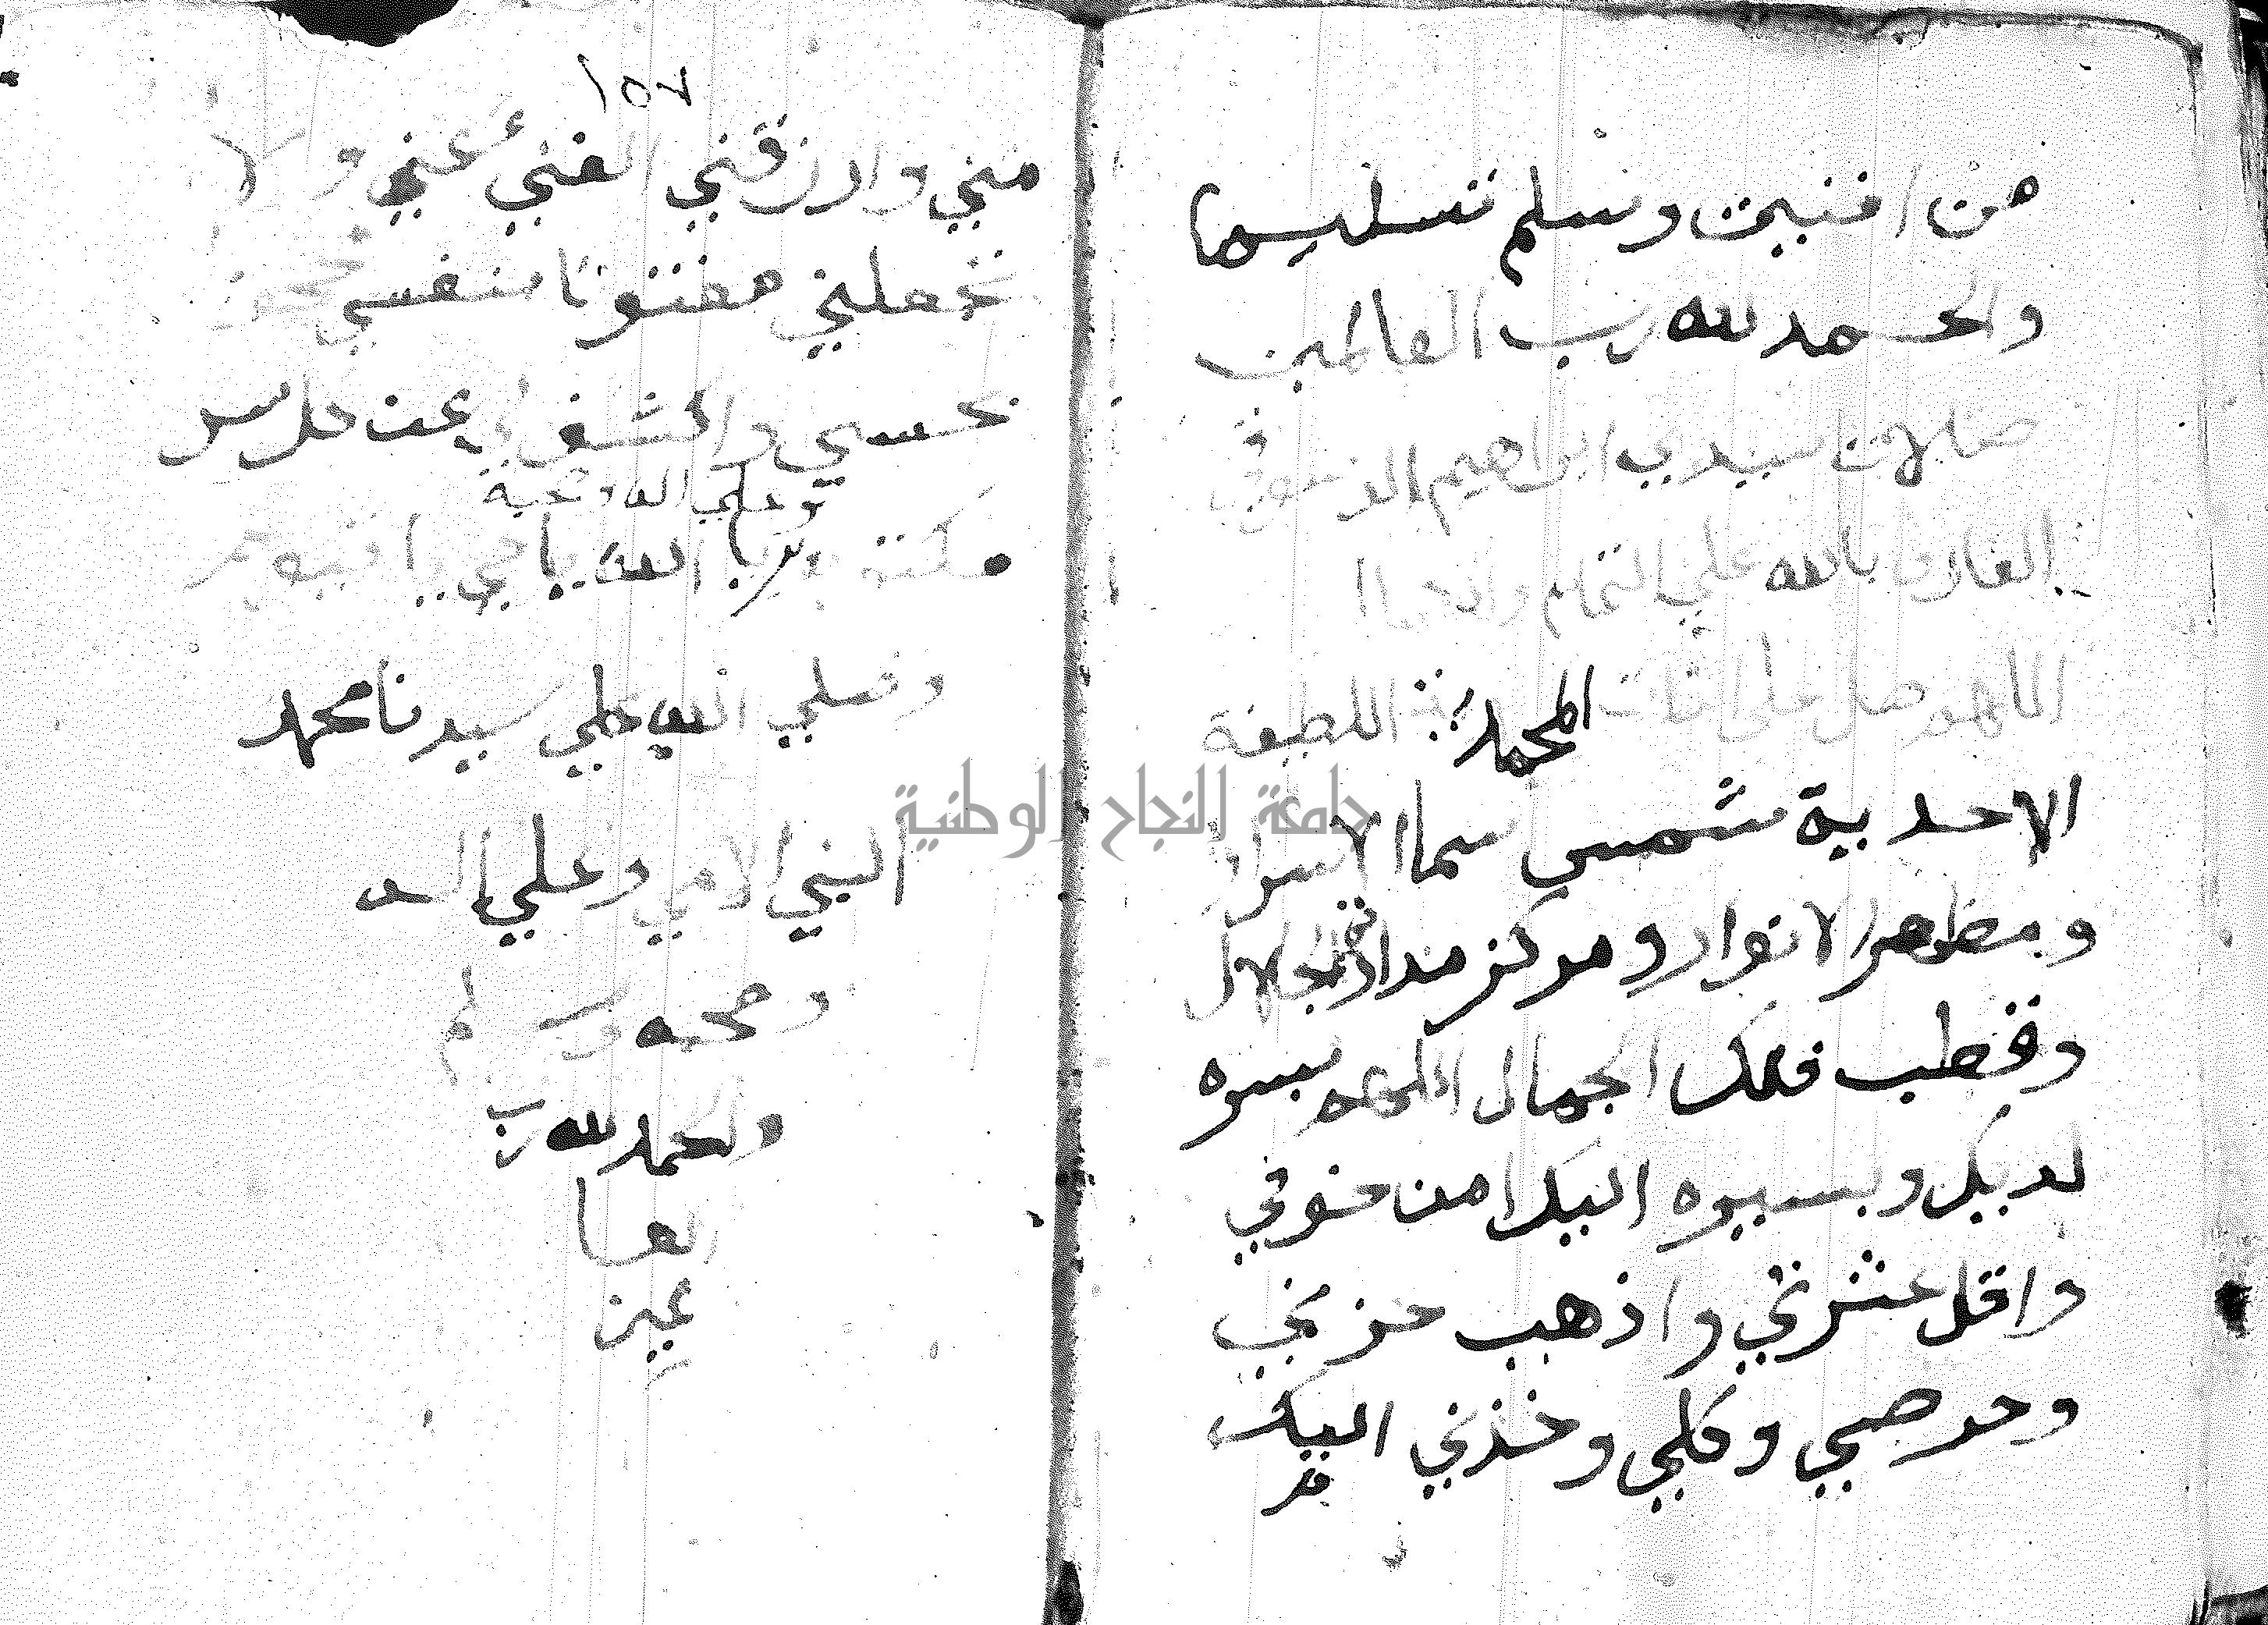 من افنيت وسلم تسليما
والحمد لله رب العالمين
صلات سيدي ابراهيم
العارف بالله علي التمام
اللهم صل علي الذات المحمدية اللطيفة
الاحدية شمس سما الاسرار
ومظهر الانوار ومركز مدار الجلال
وقطب فلك الجمال اللهم بسره
لديك وبسيره اليك امن خوفي
واقل عثرتي واذهب حزني
وحرصي وكلي وخذني اليك
١٥٧
مني وارزقني الفني عني ولا
تجعلني مفتونا بنفسي محجوبا
بحسي واكشف لي عن كل سر
مكتوم يا الله يا حي يا قيوم
وصلي الله علي سيدنا محمد
النبي الامي وعلي اله
وصحبه وسلم
والحمد لله رب
العا
لمين
جامعة النجاح الوطنية